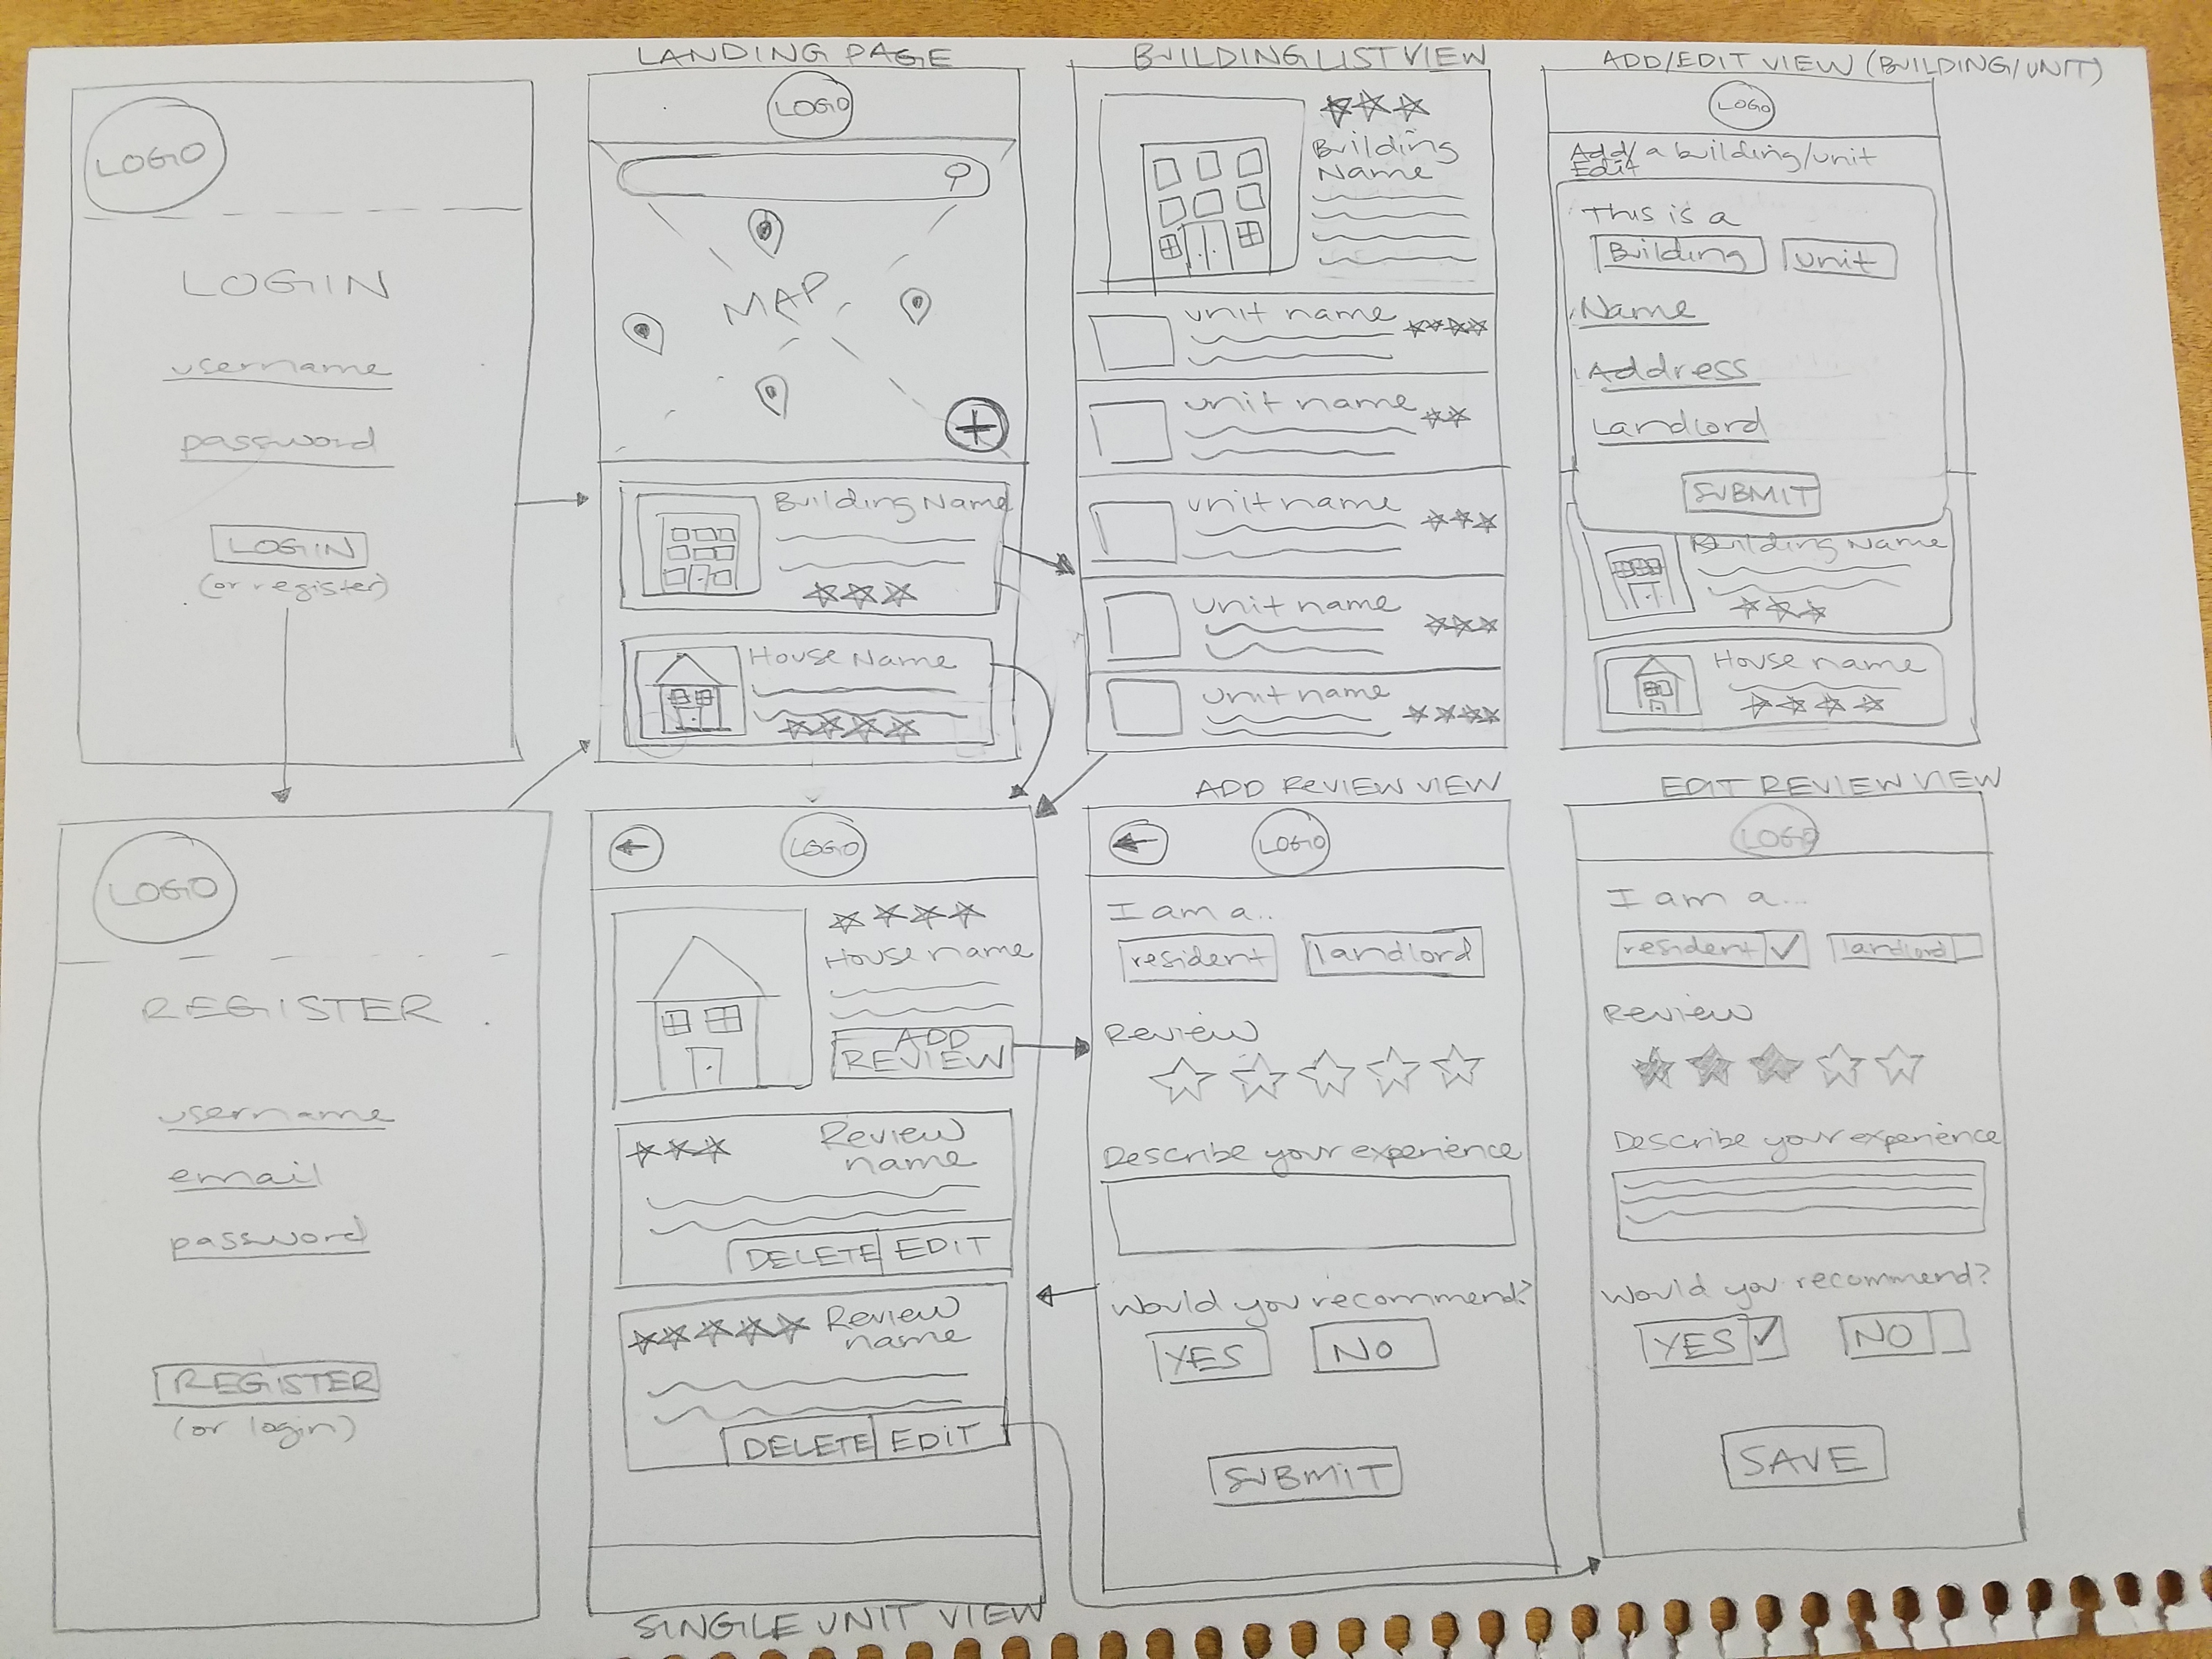 LOGO
LOGIN
username
password
LOGIN
(or register)
LANDING PAGE
LOGO
MAP
Building Name
House Name
BUILDING LIST VIEW
Building
Name
unit name
unit name
unit name
unit name
unit name
ADD/EDIT VIEW (BUILDING/UNIT)
LOGO
Add/ a building/unit
Edit
This is a
Building unit
Name
Address
Landlord
SUBMIT
Building Name
House name
LOGO
REGISTER
username
email
password
REGISTER
(or login)
LOGO
House name
ADD
REVIEW
Review
name
DELETE EDIT
Review
name
DELETE EDIT
SINGLE UNIT VIEW
ADD REVIEW VIEW
LOGO
I am a..
resident landlord
Review
Describe your experience
Would you recommend?
YES NO
SUBMIT
EDIT REVIEW VIEW
LOGO
I am a...
resident landlord
Review
Describe your experience
Would you recommend?
YES NO
SAVE